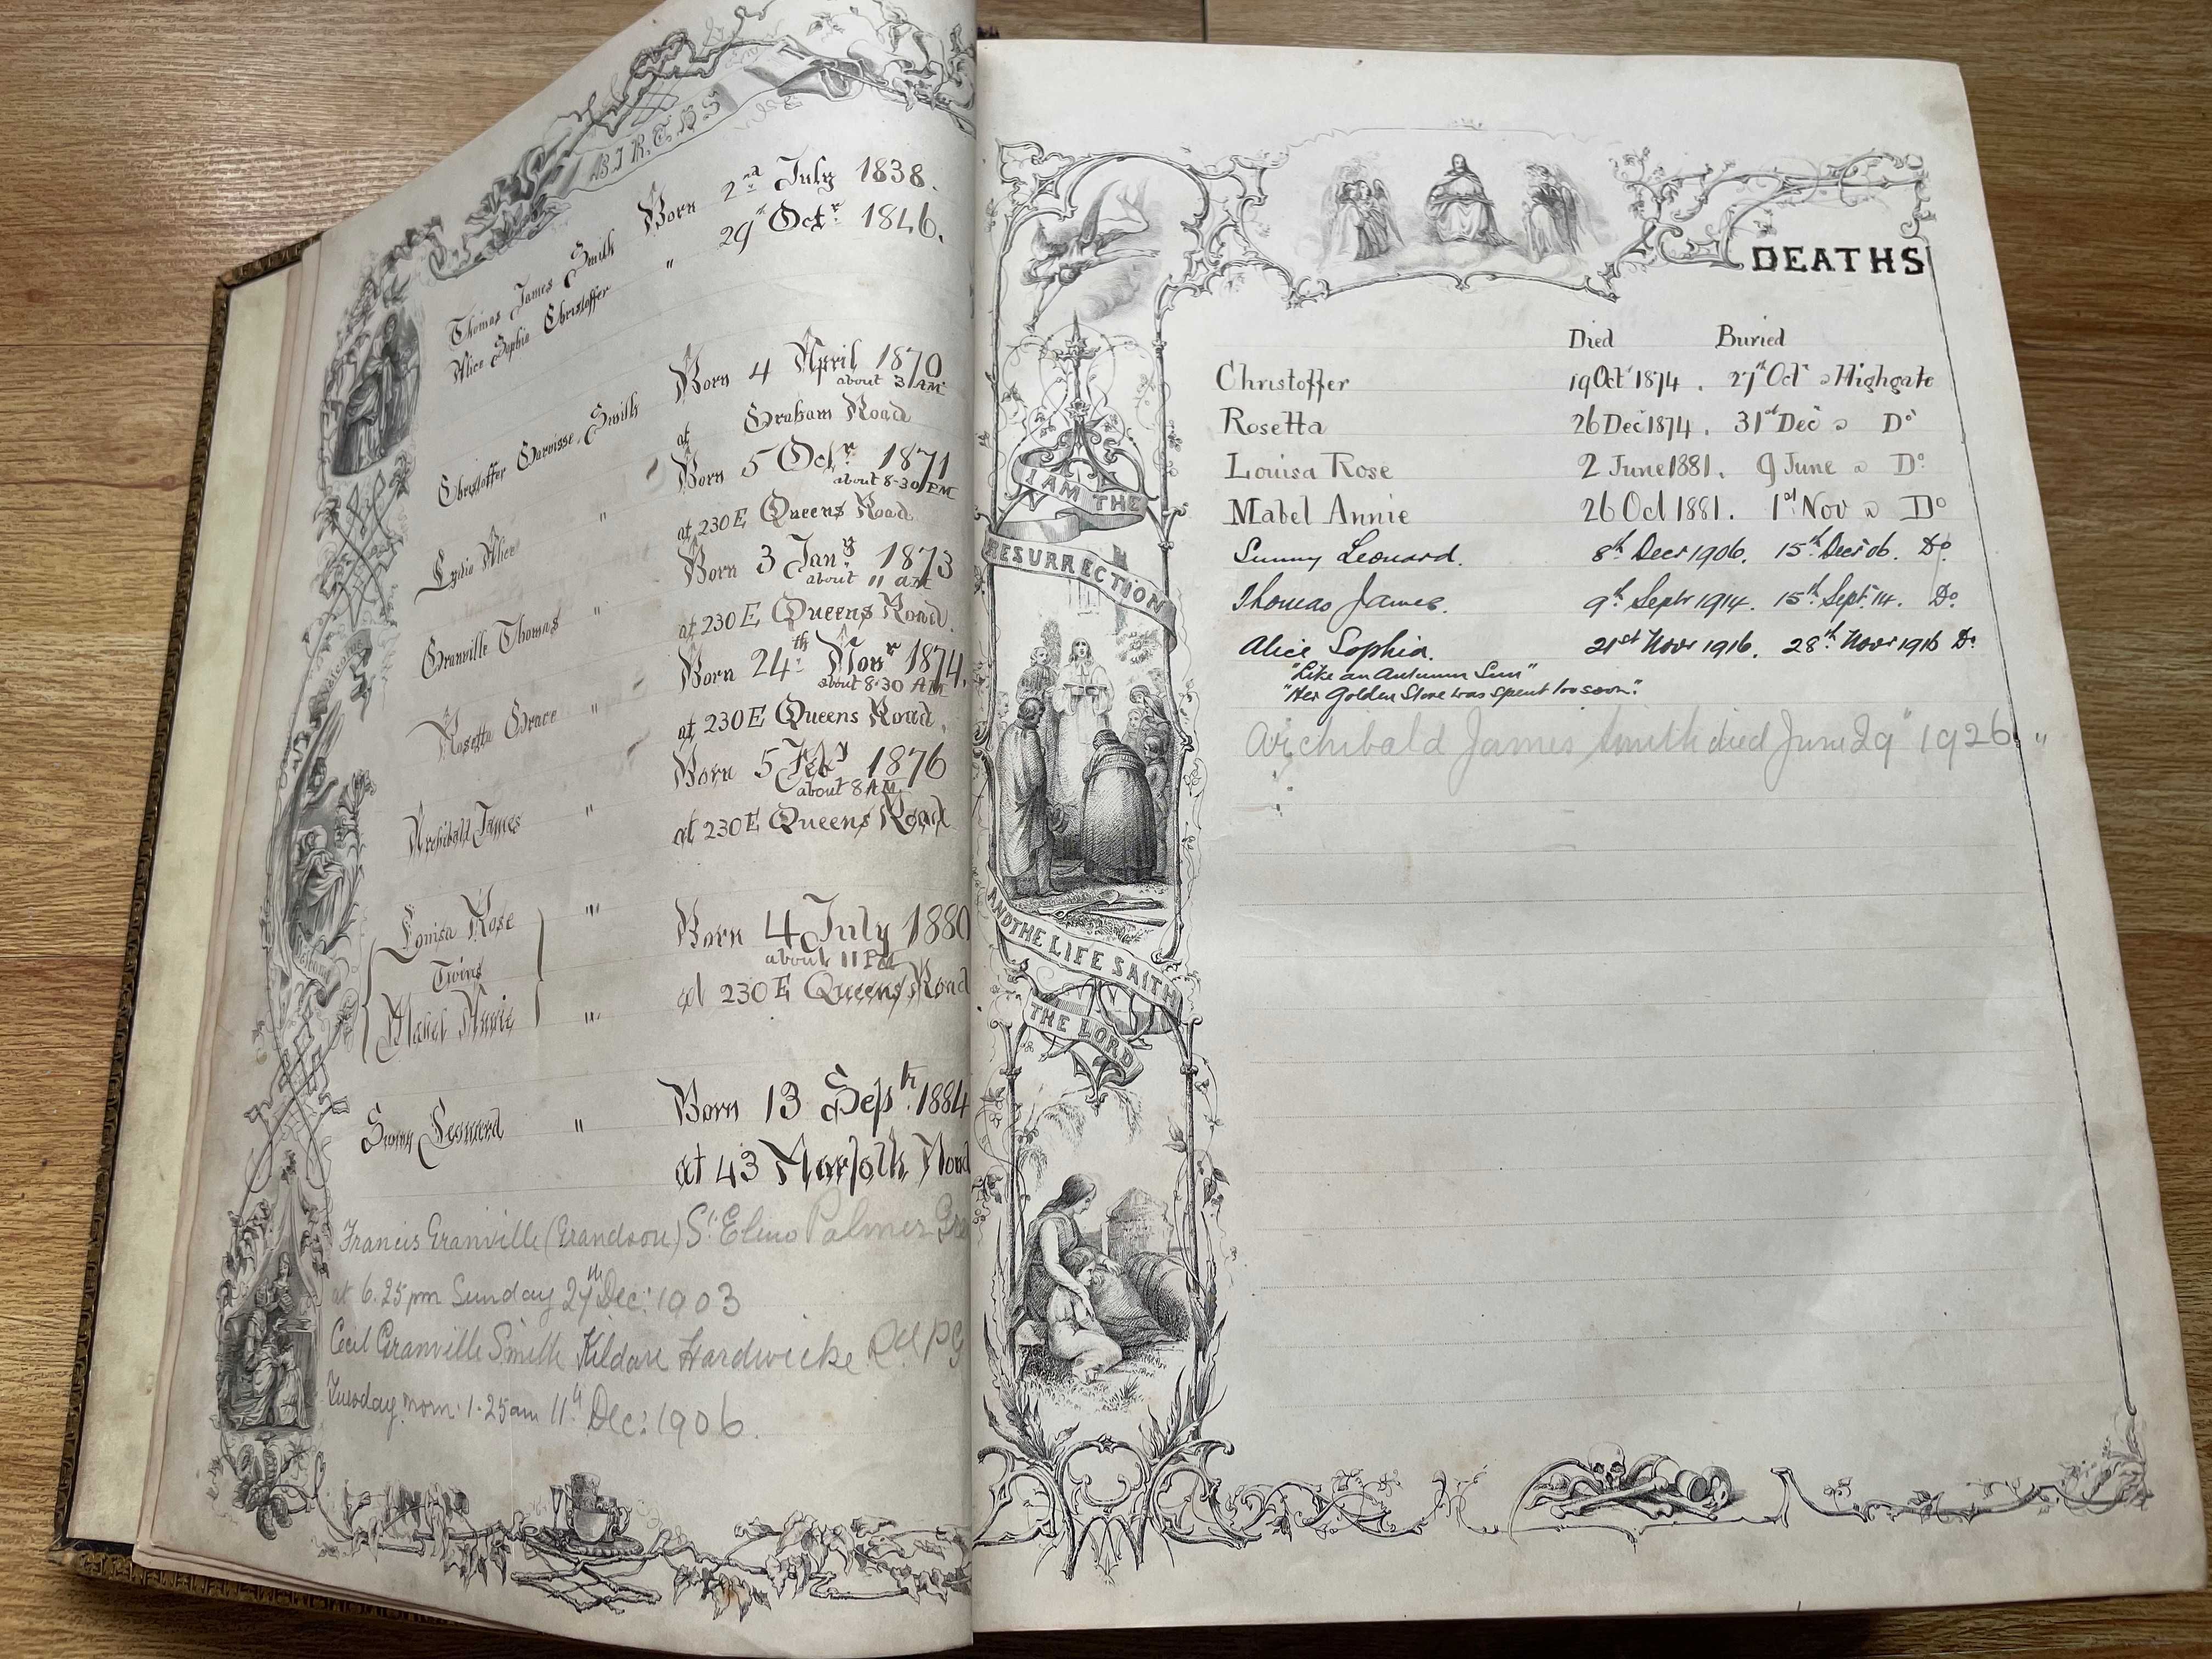 BIRTHS
Thomas James Smith Born 2nd July 1838.
Alice Sophia Christoffer " 29th Octr 1846.
Christoffer Smith Born 4 April 1870
about 3 AM
at Graham Road
Lydia Alice " Born 5 Octr 1871
about 8-30 PM
at 230E Queens Road
Granville Thomas " Born 3 Jany 1873
about 11 AM
at 230E Queens Road.
Rosetta Grace " Born 24th Novr 1874.
about 8.30 AM
at 230E Queens Road.
Archibald James " Born 5 Feby 1876
about 8 AM
at 230E Queens Road
Louisa Rose " Born 4 July 1880
Twins about 11 PM
Mabel Annie " at 230E Queens Road
Sunny Leonard " Born 13 Sept 1884
at 43 Norfolk Road
Francis Granville (Grandson) St Elmo Palmer Gro
at 6.25 pm Sunday 27th Dec: 1903
Cecil Granville Smith Kildare Hardwicke Rd PG
Tuesday morn: 1.25am 11th Dec: 1906.
DEATHS
Died Buried
Christoffer 19 Oct 1874. 27th Oct @ Highgate
Rosetta 26 Dec 1874. 31st Dec @ Do
Louisa Rose 2 June 1881. 9 June @ Do
Mabel Annie 26 Oct 1881. 1st Nov @ Do
Sunny Leonard. 8th Decr 1906. 15th Decr 06. Do
Thomas James. 9th Septr 1914. 15th Sept. 14. Do.
Alice Sophia. 21st Novr 1916. 28th Novr 1916 Do.
"Like an Autumn Sun"
"Her Golden Store was spent too soon".
Archibald James Smith died June 29" 1926. "
I AM THE
RESURRECTION
AND THE LIFE SAITH
THE LORD